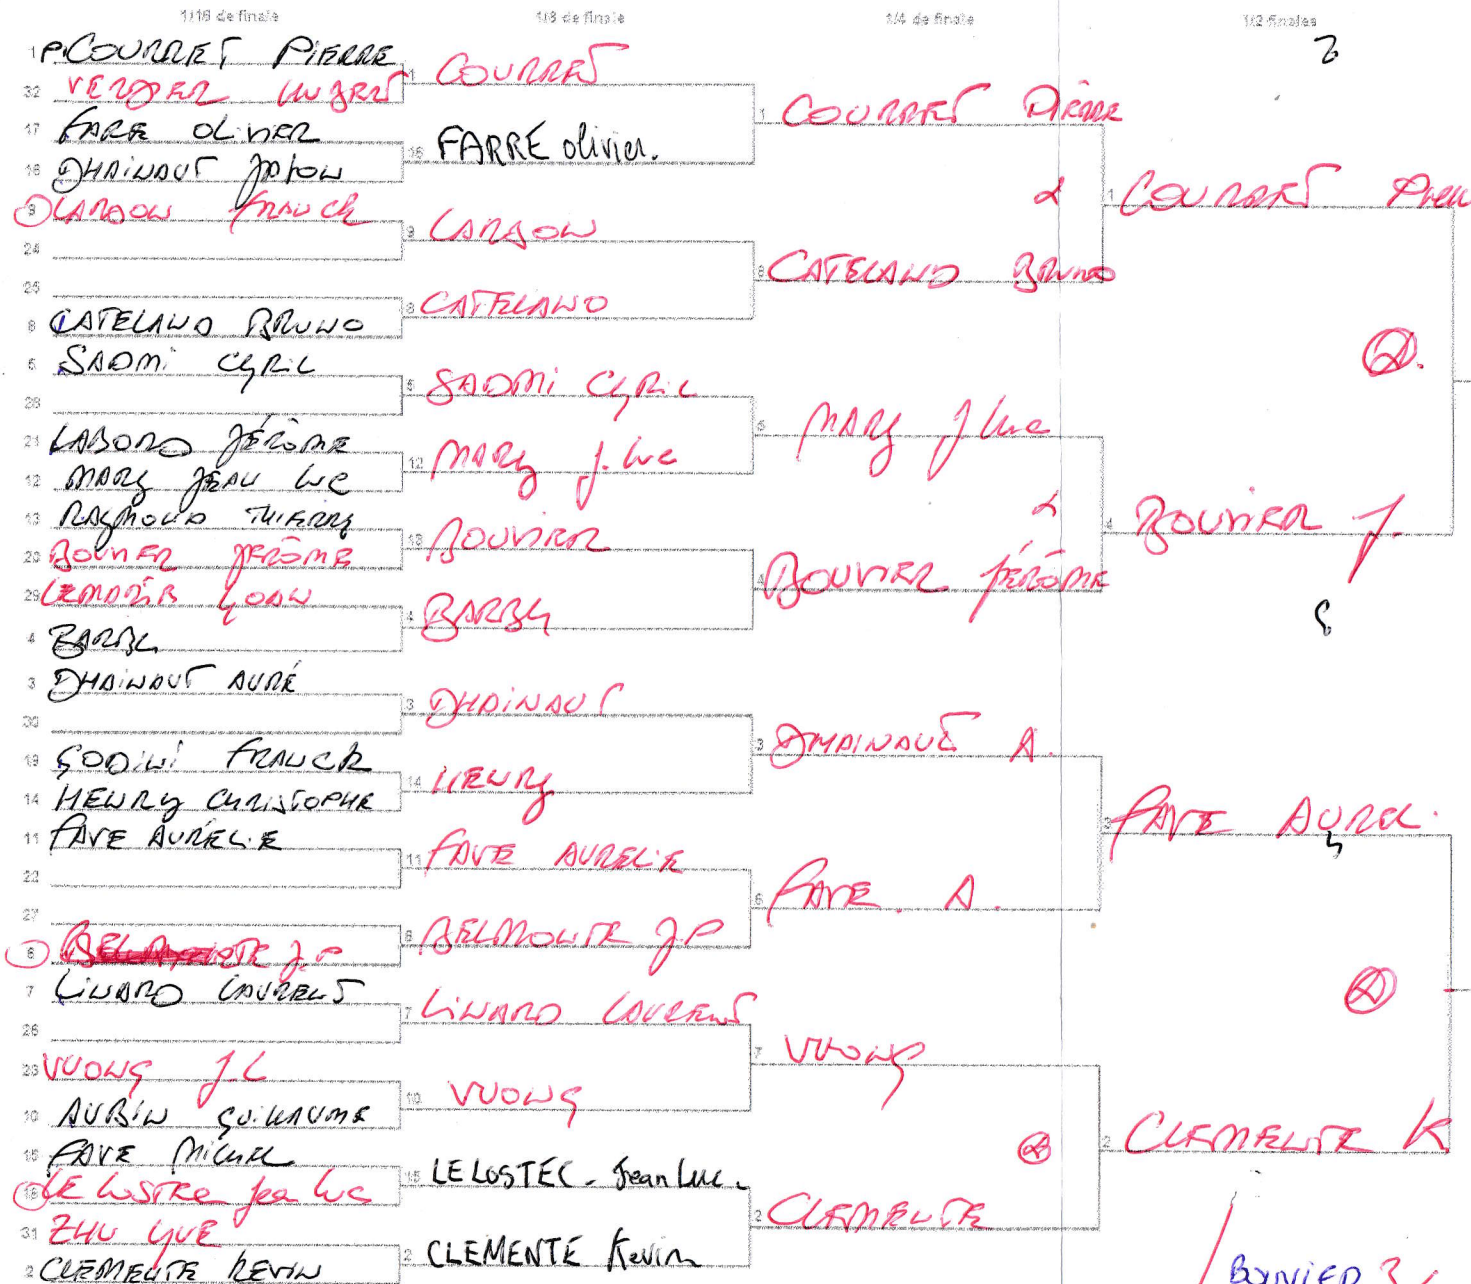 1/16 de finale
1/8 de finale
1/4 de finale
1/2 finales
1 P. COURRET PIERRE
32 VERDIER
17 FARE OLIVIER
16 DHAINAUT
9 LARDON FRANCK
24
25
8 CATELAND BRUNO
5 SADMI CYRIL
28
21 LABORD JÉRÔME
12 MARY JEAN LUC
13 RAYMOND THIERRY
20 BOUVIER JÉRÔME
29 YOAN
4 BARBY
3 DHAINAUT AURÉ
30
19 GODINI FRANCK
14 HENRY CHRISTOPHE
11 FAVE AURÉLIE
22
27
6 J.P
7 LINARD LAURENT
26
23 VUONG J.L
10 AUBIN GUILLAUME
15 FAVE MICHEL
18 LE LOSTEC Jean Luc
31 ZHU YUE
2 CLEMENTE KEVIN
1 COURRET
16 FARRE olivier.
9 LARDON
8 CATELAND
5 SADMI CYRIL
12 MARY J. LUC
13 BOUVIER
4 BARBY
3 DHAINAUT
14 HENRY
11 FAVE AURELIE
6 BELMONTE J.P
7 LINARD LAURENT
10 VUONG
15 LE LOSTEC - Jean Luc.
2 CLEMENTE Kevin
1 COURRET PIERRE
8 CATELAND BRUNO
5 MARY J LUC
4 BOUVIER JÉRÔME
3 DHAINAUT A.
6 FAVE. A.
7 VUONG
2 CLEMENTE
1 COURRET
4 BOUVIER J.
3 FAVE AUREL.
2 CLEMENTE K
2
5
BOUVIER